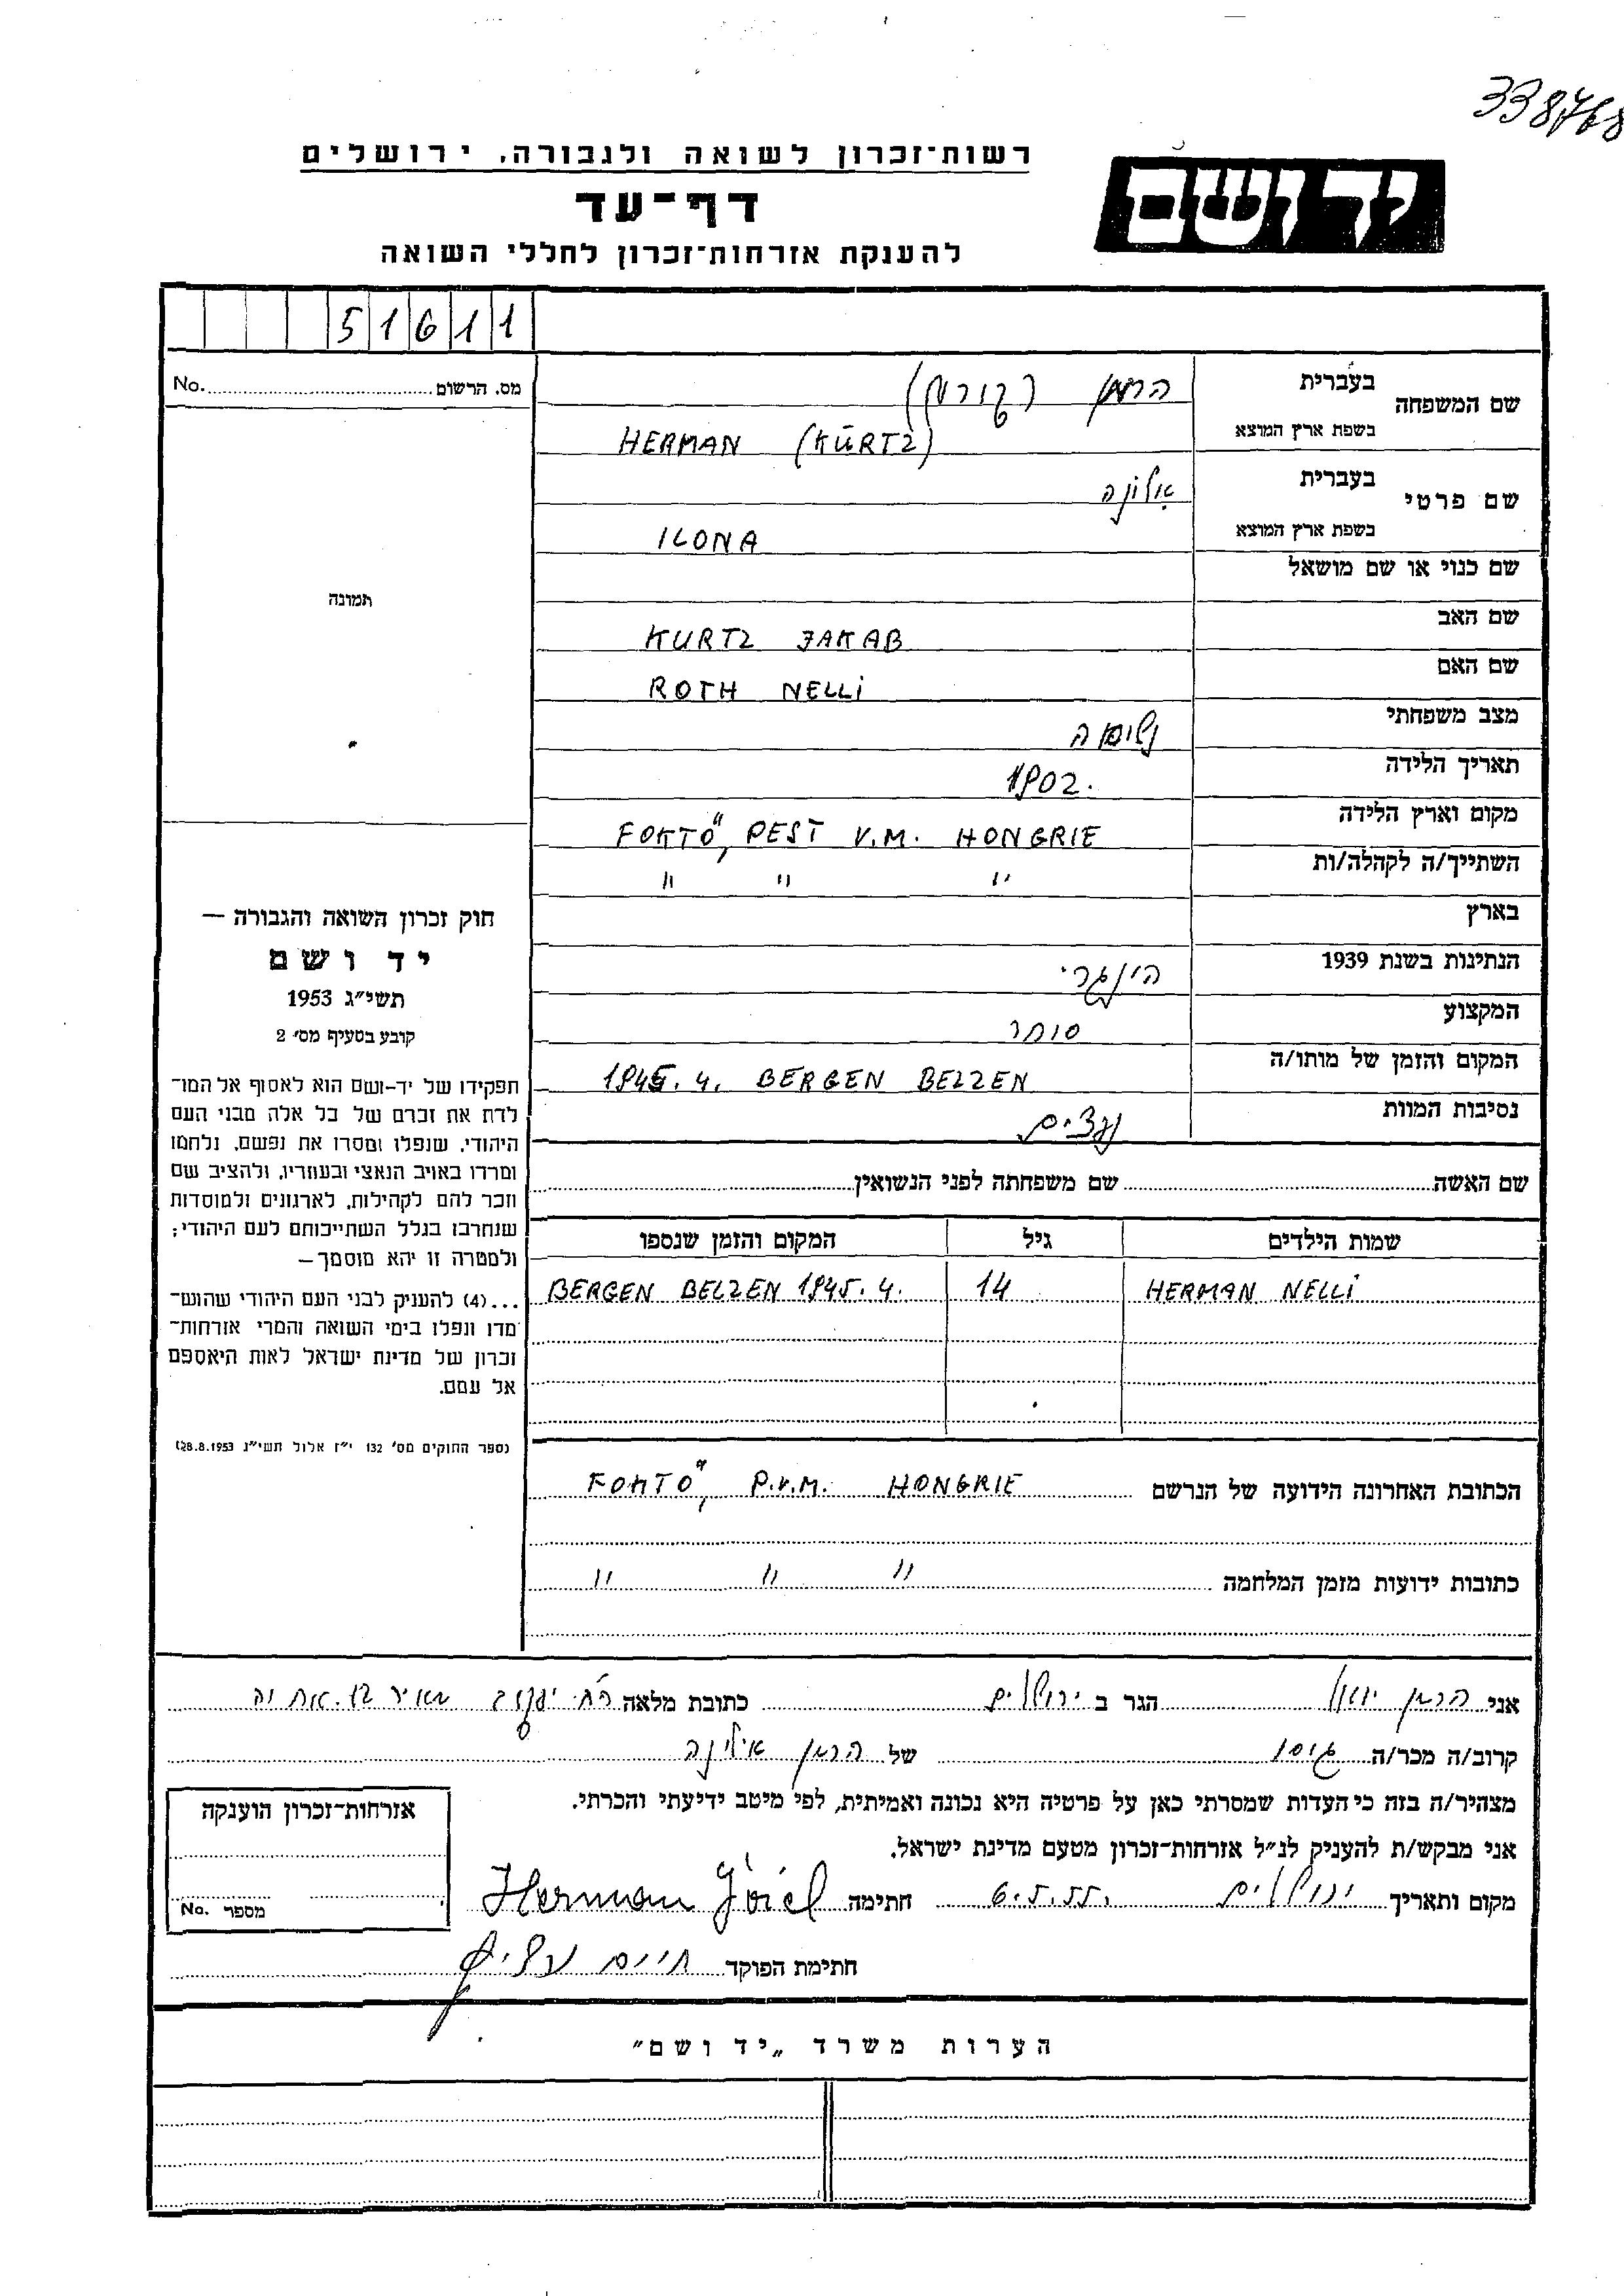 338768
רשות־זכרון לשואה ולגבורה, ירושלים
יד ושם
דף־עד
להענקת אזרחות־זכרון לחללי השואה
51611
מס. הרשום No.
תמונה
שם המשפחה בעברית הרמן (קורץ)
בשפת ארץ המוצא HERMAN (KŪRTZ)
שם פרטי בעברית אילונה
בשפת ארץ המוצא ILONA
שם כנוי או שם מושאל
שם האב KURTZ JAKAB
שם האם ROTH NELLi
מצב משפחתי נשואה
תאריך הלידה 1902.
מקום וארץ הלידה FOKTŐ, PEST V.M. HONGRIE
השתייך/ה לקהלה/ות " " "
בארץ
הנתינות בשנת 1939 הונגרי
המקצוע סוחר
המקום והזמן של מותו/ה 1945. 4. BERGEN BELZEN
נסיבות המוות נאצים
שם האשה שם משפחתה לפני הנשואין
שמות הילדים גיל המקום והזמן שנספו
HERMAN NELLi 14 BERGEN BELZEN 1945. 4.
הכתובת האחרונה הידועה של הנרשם FOKTŐ, P.V.M. HONGRIE
כתובות ידועות מזמן המלחמה " " "
חוק זכרון השואה והגבורה —
יד ושם
תשי״ג 1953
קובע בסעיף מס׳ 2
תפקידו של יד־ושם הוא לאסוף אל המו־
לדת את זכרם של כל אלה מבני העם
היהודי, שנפלו ומסרו את נפשם, נלחמו
ומרדו באויב הנאצי ובעוזריו, ולהציב שם
וזכר להם לקהילות, לארגונים ולמוסדות
שנחרבו בגלל השתייכותם לעם היהודי;
ולמטרה זו יהא מוסמך —
...(4) להעניק לבני העם היהודי שהוש־
מדו ונפלו בימי השואה והמרי אזרחות־
זכרון של מדינת ישראל לאות היאספם
אל עמם.
(ספר החוקים מס׳ 132 י״ז אלול תשי״ג 28.8.1953)
אני הרמן יואל הגר ב ירושלים כתובת מלאה יעקב מאיר 12.
קרוב/ה מכר/ה גיסו של הרמן אילונה
מצהיר/ה בזה כי העדות שמסרתי כאן על פרטיה היא נכונה ואמיתית, לפי מיטב ידיעתי והכרתי.
אני מבקש/ת להעניק לנ״ל אזרחות־זכרון מטעם מדינת ישראל.
מקום ותאריך ירושלים 6.5.55. חתימה Herman Jóiel
חתימת הפוקד חיים
אזרחות־זכרון הוענקה
מספר No.
הערות משרד „יד ושם״